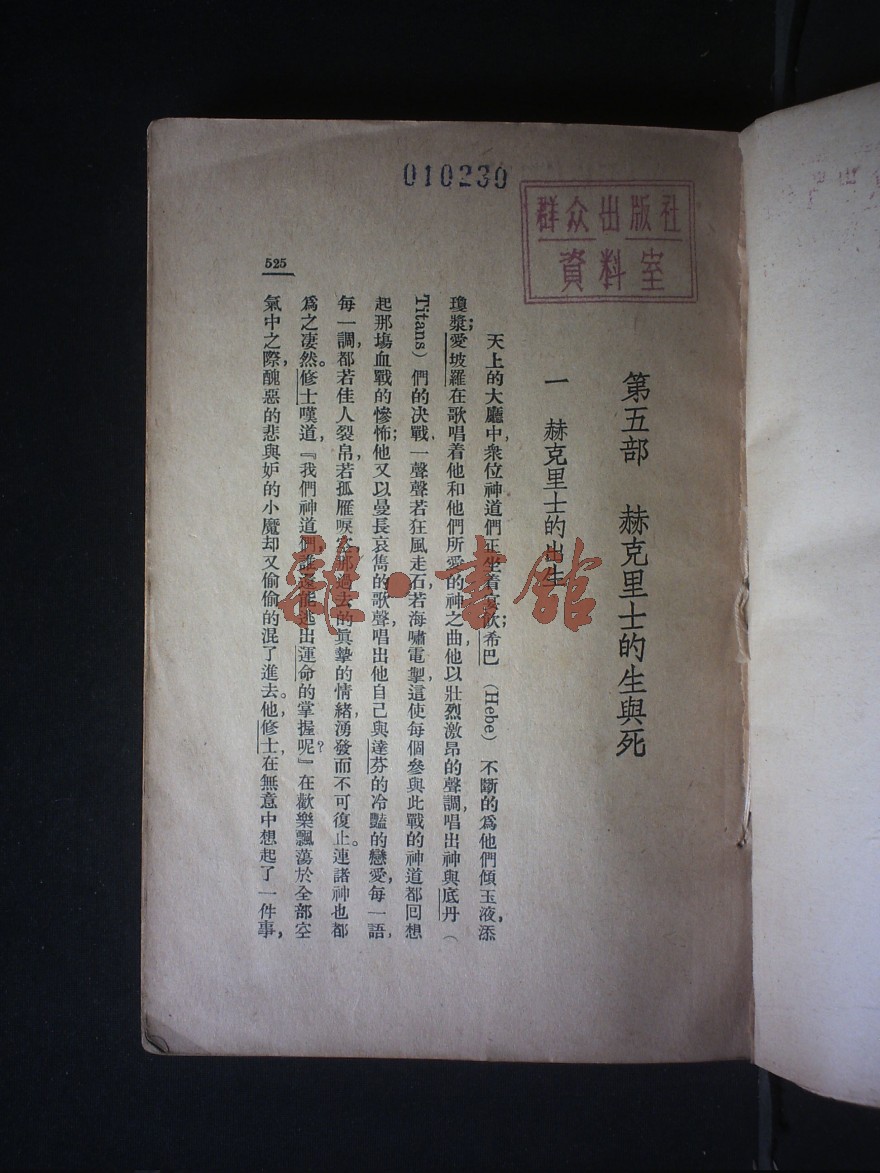 010230
群众出版社
資料室
第五部　赫克里士的生與死
一　赫克里士的出生
天上的大廳中，衆位神道們正坐着宴飲；希巴（Hebe）不斷的爲他們傾玉液，添
瓊漿；愛坡羅在歌唱着他和他們所愛的神之曲，他以壯烈激昂的聲調，唱出神與底丹（
Titans）們的决戰，一聲聲若狂風走石，若海嘯電掣，這使每個參與此戰的神道都回想
起那塲血戰的慘怖；他又以曼長哀雋的歌聲，唱出他自己與達芬的冷豔的戀愛，每一語，
每一調，都若佳人裂帛，若孤雁唳
那過去的眞摯的情緒，湧發而不可復止。連諸神也都
爲之凄然。修士嘆道，『我們神道們，誰還能逃出運命的掌握呢？』在歡樂飄蕩於全部空
氣中之際，醜惡的悲與妒的小魔却又偷偷的混了進去。他，修士，在無意中想起了一件事，
525
雜·書館